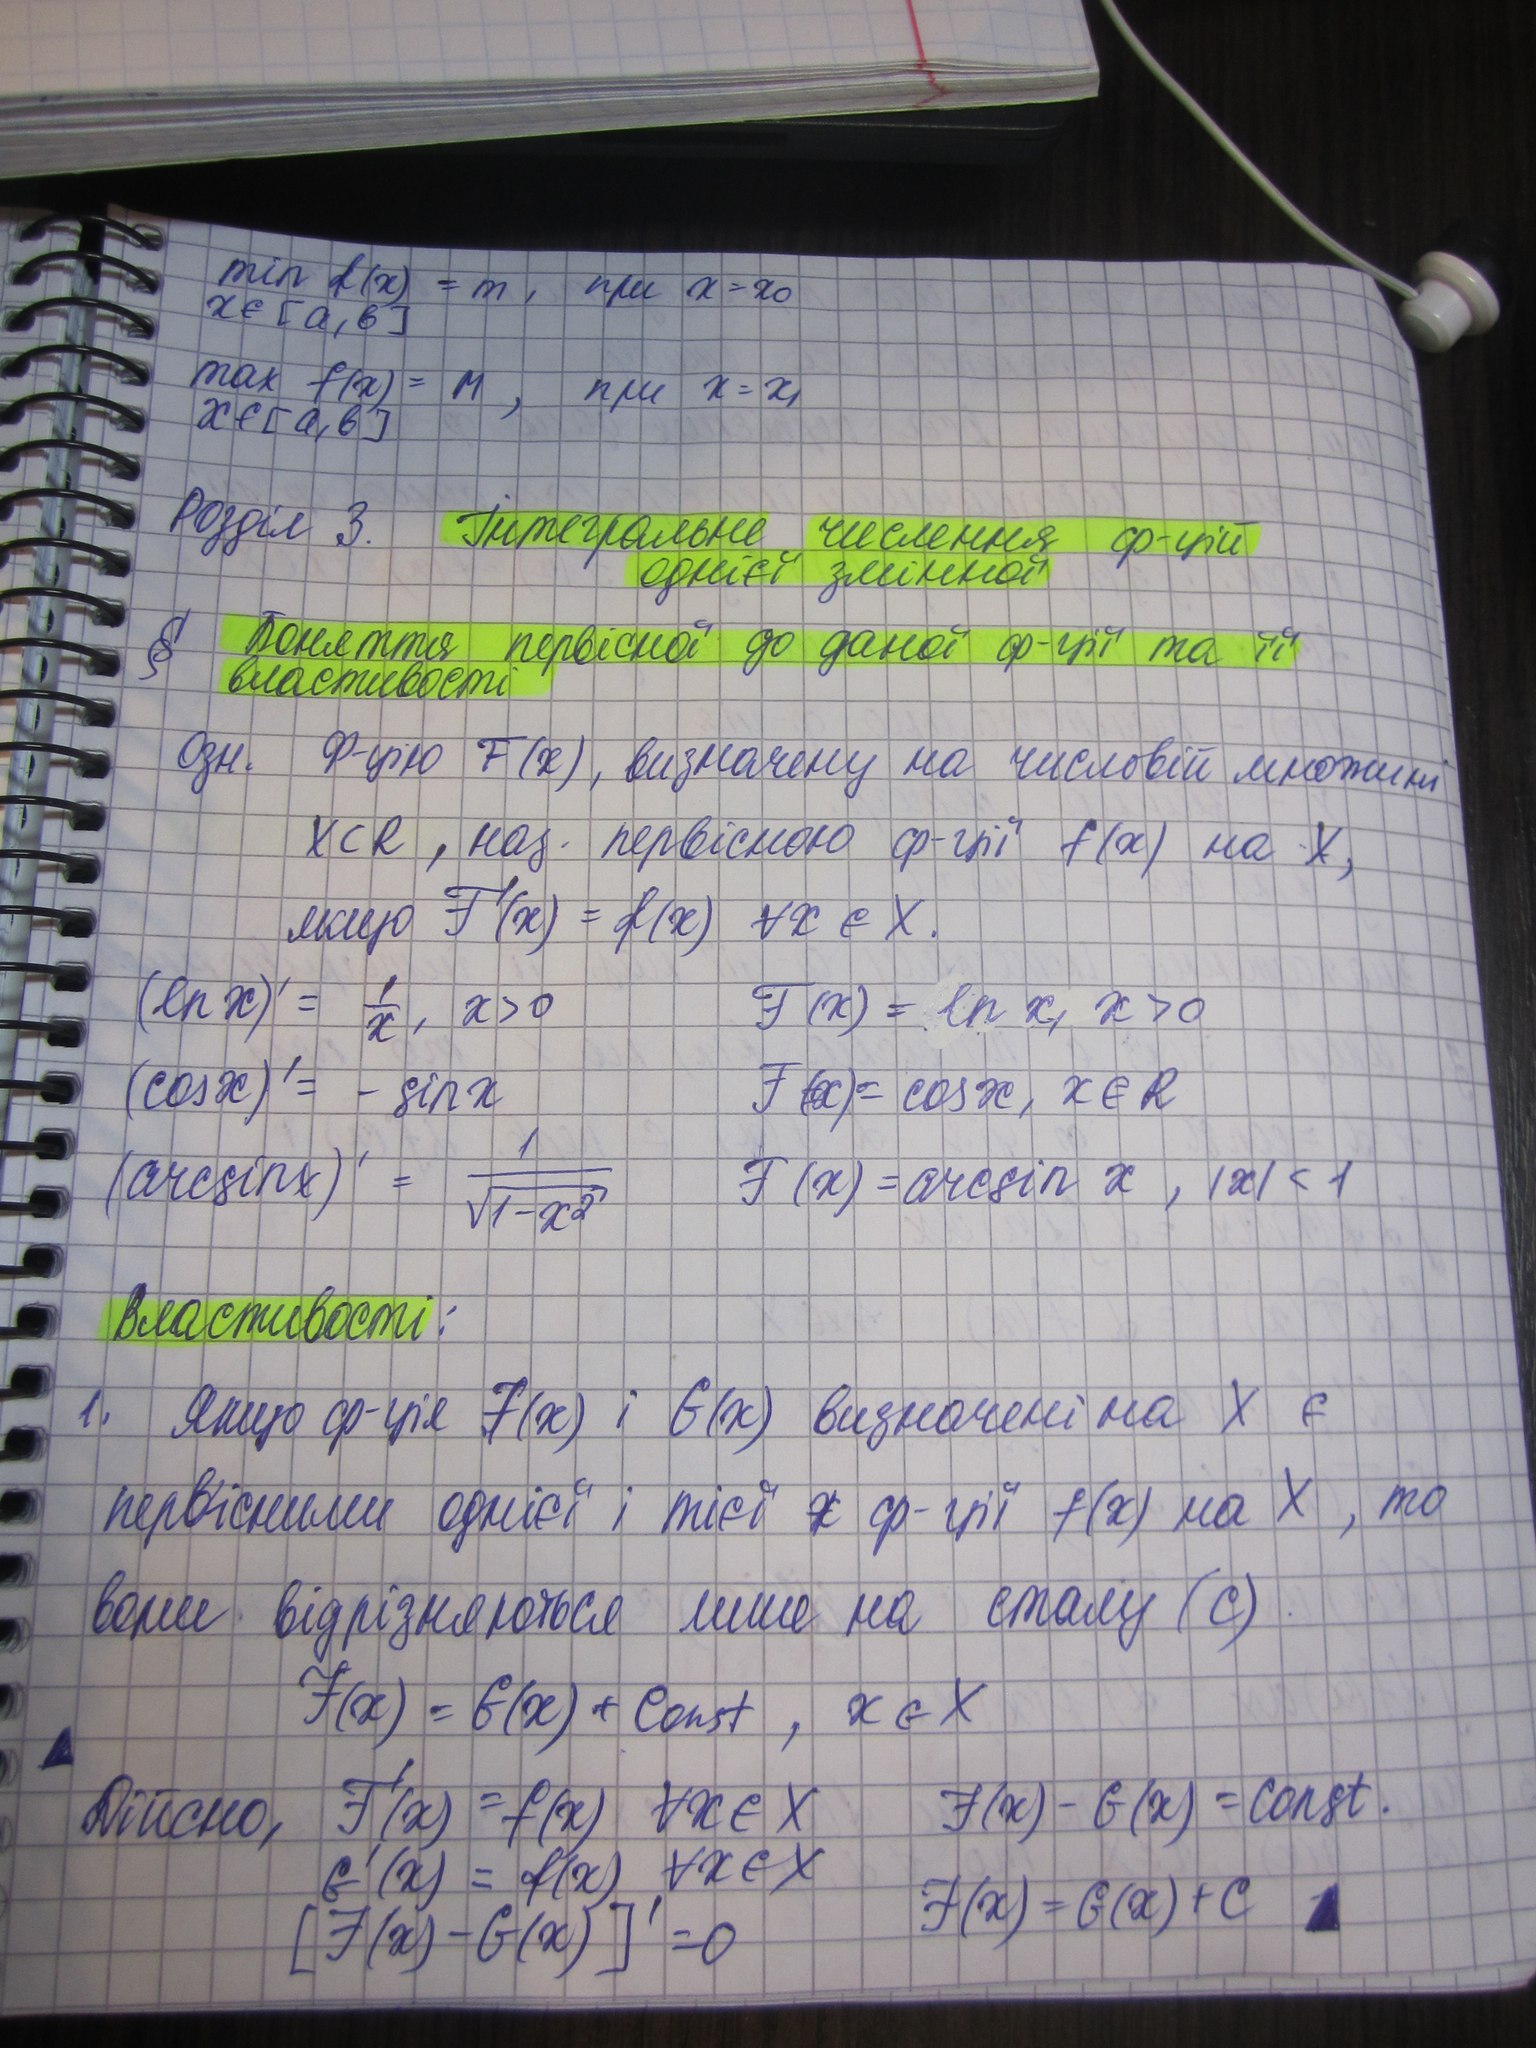 min f(x) = m, при x = x₀
x∈[a,в]
max f(x) = M, при x = x₁
x∈[a,в]
Розділ 3. Інтегральне числення ф-цій
однієї змінної
§ Поняття первісної до даної ф-ції та її
властивості
Озн. Ф-цію F(x), визначену на числовій множині
X⊂R, наз. первісною ф-ції f(x) на X,
якщо F'(x) = f(x) ∀x ∈ X.
(ln x)' = 1/x, x>0 F(x) = ln x, x>0
(cosx)' = - sinx F(x) = cosx, x∈R
(arcsinx)' = 1/√(1-x²) F(x) = arcsin x, |x| < 1
Властивості:
1. Якщо ф-ція F(x) і G(x) визначені на X є
первісними однієї і тієї ж ф-ції f(x) на X, то
вони відрізняються лише на сталу (c).
F(x) = G(x) + Const, x ∈ X
Дійсно, F'(x) = f(x) ∀x∈X F(x) - G(x) = Const.
G'(x) = f(x) ∀x∈X
F(x) = G(x) + C
[F(x) - G(x)]' = 0